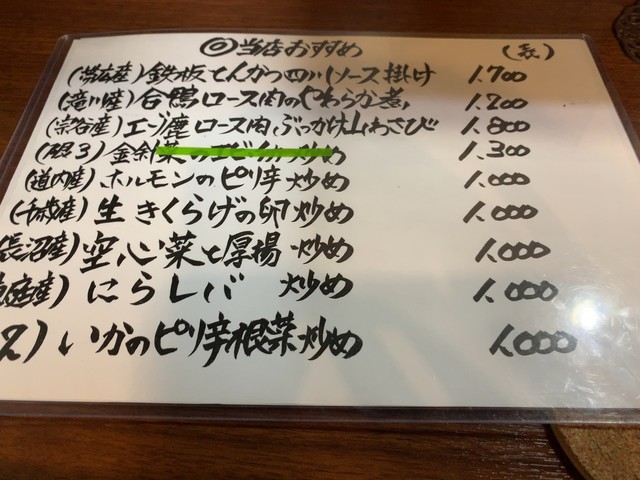 ◎当店おすすめ (税込)
(帯広産) 鉄板とんかつ四川ソース掛け 1.700
(滝川産) 合鴨ロース肉のやわらか煮 1.200
(宗谷産) エゾ鹿ロース肉ぶっかけ山わさび 1.800
金針菜のエビ 炒め 1.300
(道内産) ホルモンのピリ辛炒め 1.000
(千歳産) 生きくらげの卵炒め 1.000
長沼産) 空心菜と厚揚炒め 1.000
産) にらレバ炒め 1.000
) いかのピリ辛根菜炒め 1.000